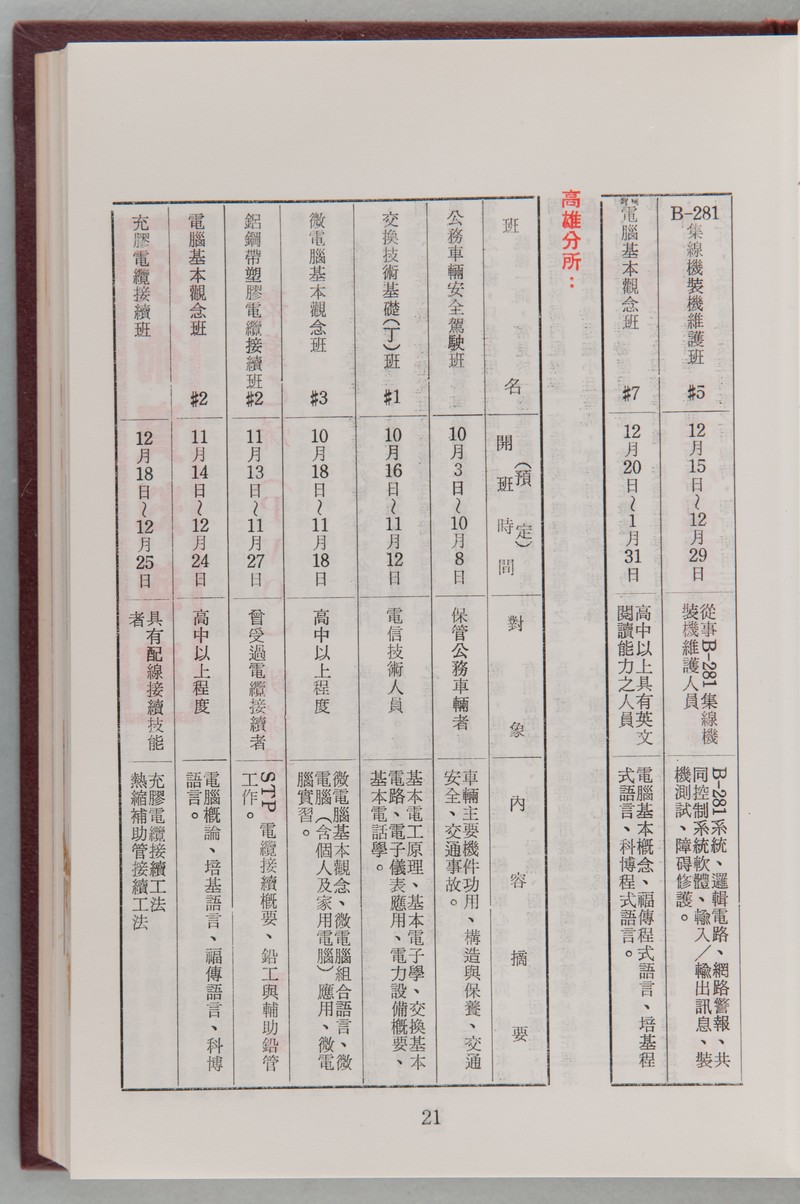 B-281集線機裝機維護班 #5
12月15日~12月29日
從事B-281集線機
裝機維護人員
B-281系統、邏輯電路、網路警報、共
同控制系統軟體、輸入/輸出訊息、裝
機測試、障碍修護。
電腦基本觀念班 #7
12月20日~1月31日
高中以上具有英文
閱讀能力之人員
電腦基本概念、福傳程式語言、培基程
式語言、科博程式語言。
高雄分所:
班名
開班時間
(預定)
對象
內容摘要
公務車輛安全駕駛班
10月3日~10月8日
保管公務車輛者
車輛主要機件功用、構造與保養、交通
安全、交通事故。
交換技術基礎(丁)班 #1
10月16日~11月12日
電信技術人員
基本電工原理、基本電子學、交換基本
電路、電子儀表應用、電力設備概要、
基本電話學。
微電腦基本觀念班 #3
10月18日~11月18日
高中以上程度
微電腦基本觀念、微電腦組合語言、微
電腦(含個人及家用電腦)應用、微電
腦實習。
鋁鋼帶塑膠電纜接續班 #2
11月13日~11月27日
曾受過電纜接續者
STP電纜接續概要、鉛工與輔助鉛管
工作。
電腦基本觀念班 #2
11月14日~12月24日
高中以上程度
電腦概論、培基語言、福傳語言、科博
語言。
充膠電纜接續班
12月18日~12月25日
具有配線接續技能
者
充膠電纜接續工法
熱縮補助管接續工法
21